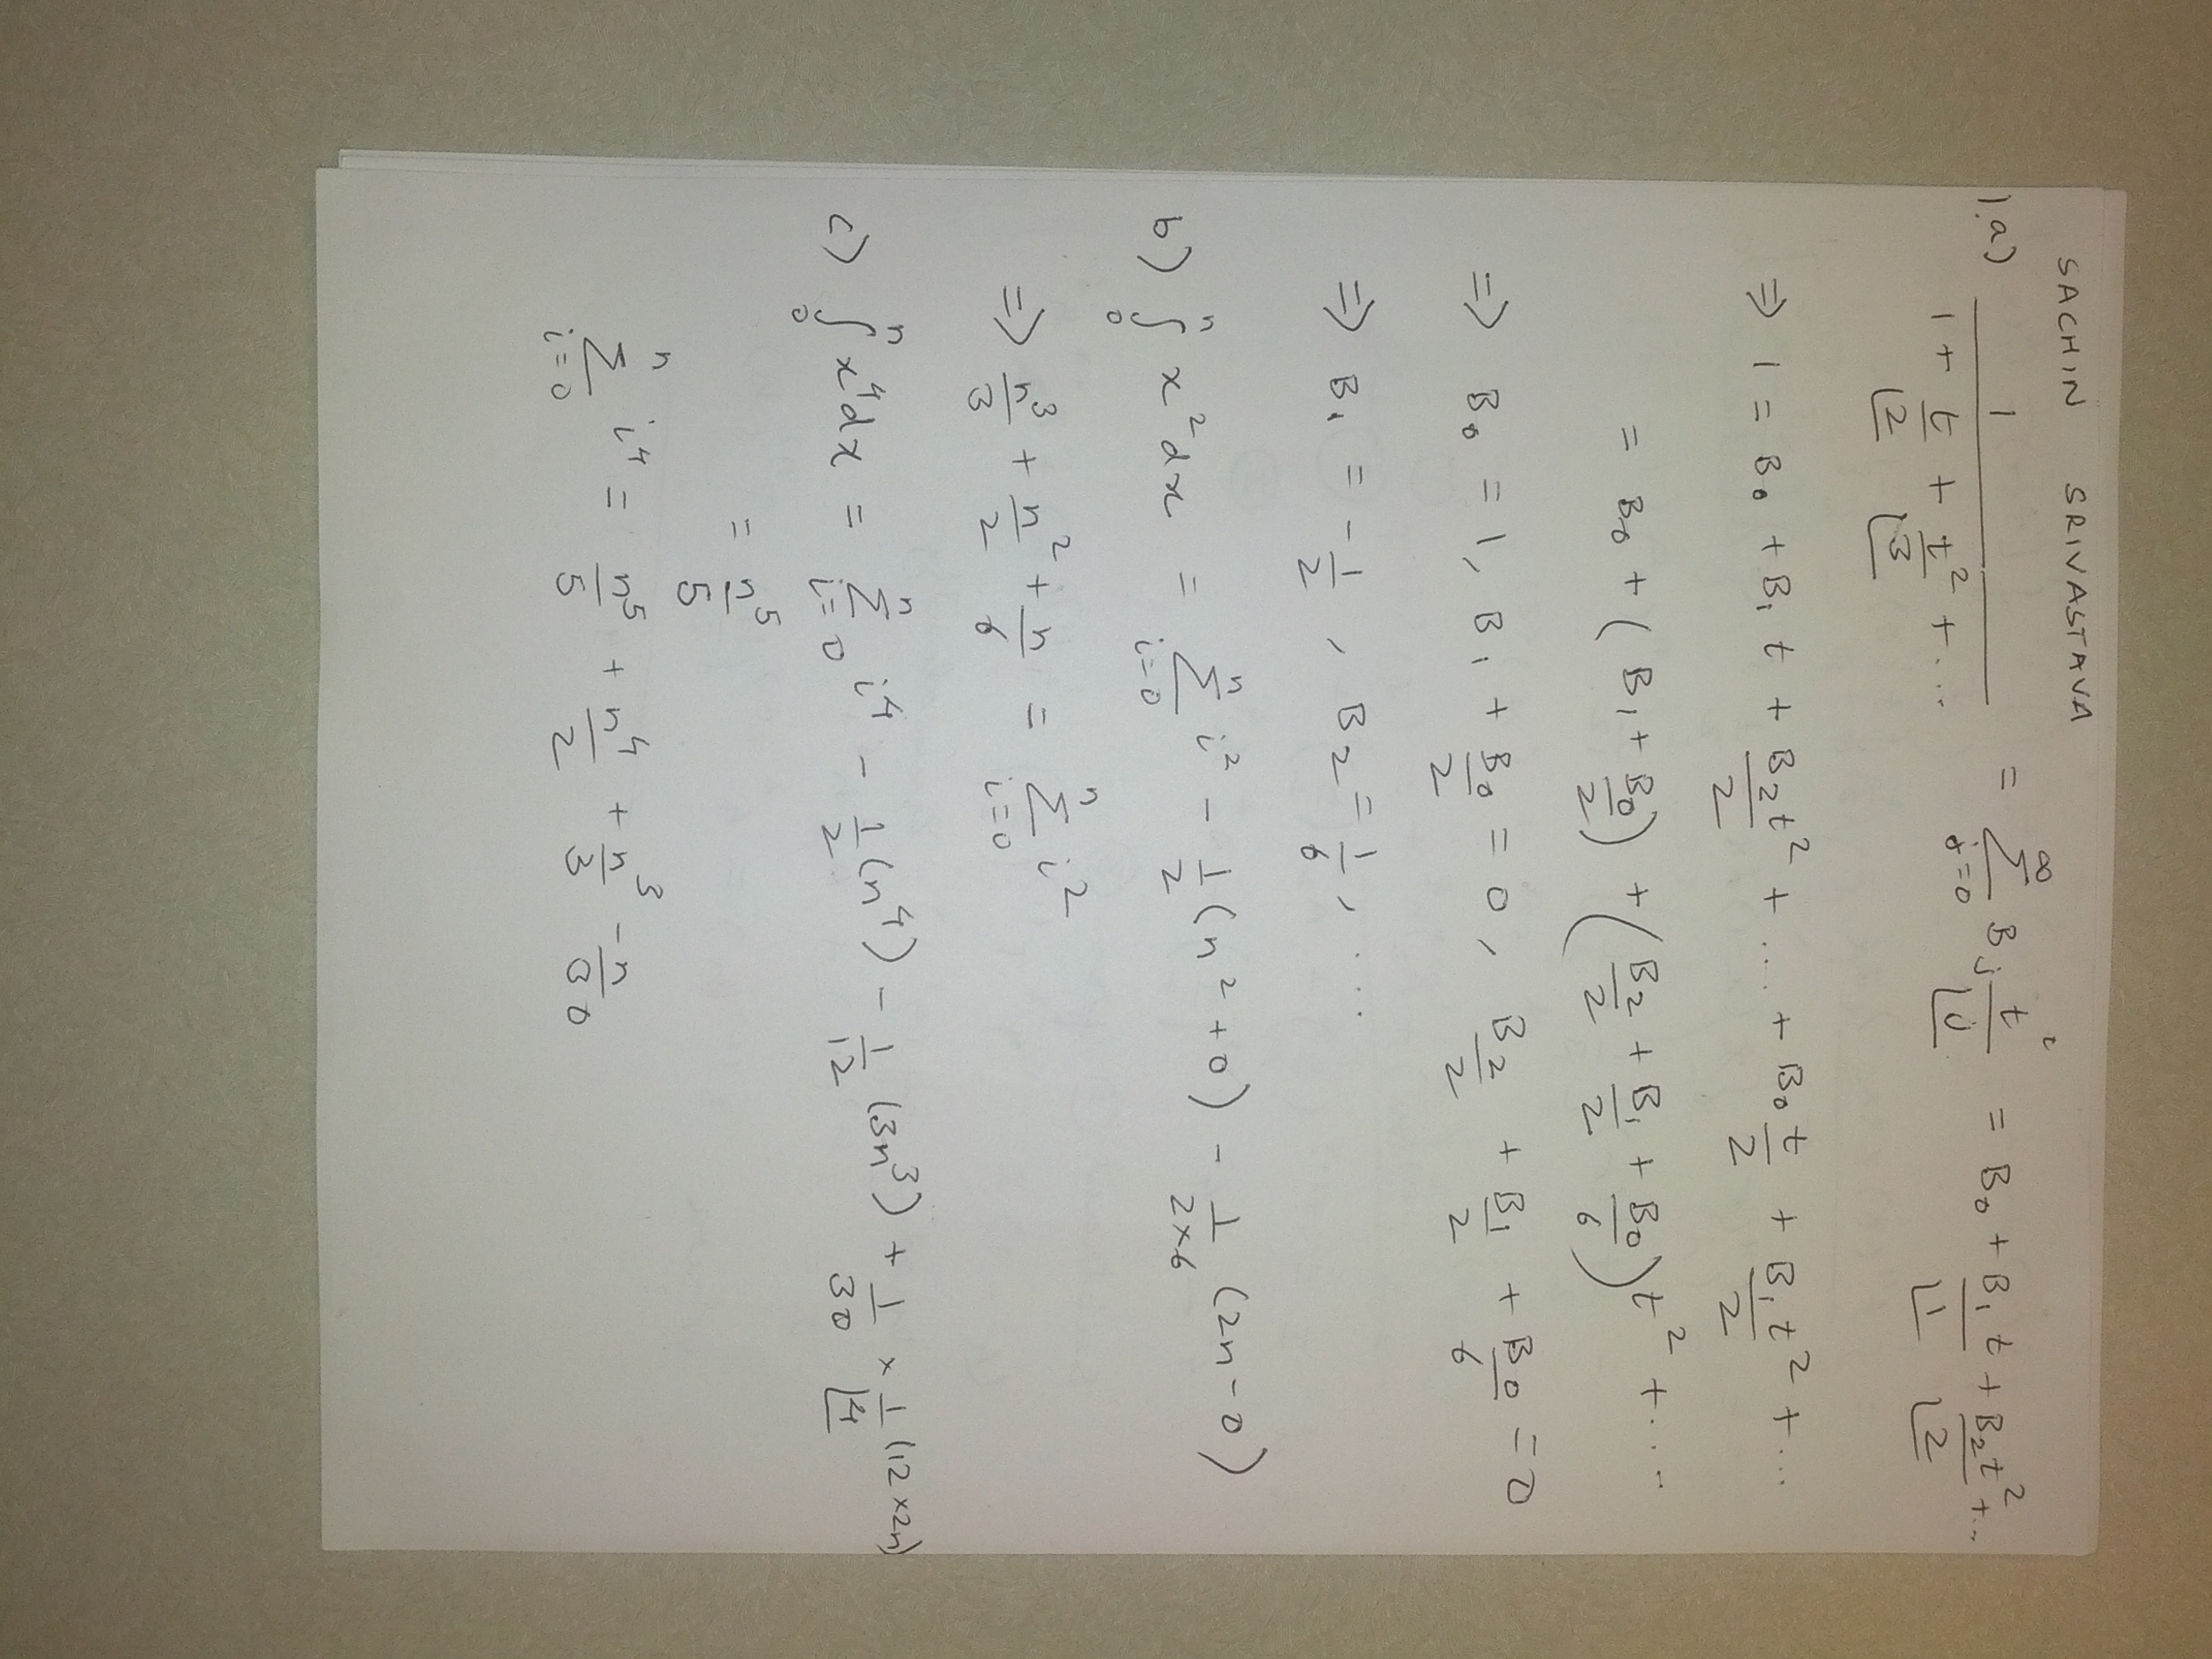 SACHIN SRIVASTAVA
1.a) 1/(1 + t/⌊2 + t²/⌊3 + ...) = ∑_{j=0}^{∞} B_j t^j/⌊j = B₀ + B₁t/⌊1 + B₂t²/⌊2 + ...
⇒ 1 = B₀ + B₁t + B₂t²/2 + .... + B₀t/2 + B₁t²/2 + ...
= B₀ + (B₁ + B₀/2) + (B₂/2 + B₁/2 + B₀/6)t² + ....
⇒ B₀ = 1, B₁ + B₀/2 = 0, B₂/2 + B₁/2 + B₀/6 = 0
⇒ B₁ = -1/2, B₂ = 1/6, ...
b) ∫₀ⁿ x²dx = ∑_{i=0}^{n} i² - 1/2(n² + 0) - 1/(2×6) (2n - 0)
⇒ n³/3 + n²/2 + n/6 = ∑_{i=0}^{n} i²
c) ∫₀ⁿ x⁴dx = ∑_{i=0}^{n} i⁴ - 1/2(n⁴) - 1/12 (3n³) + 1/30 × 1/⌊4 (12×2n)
= n⁵/5
∑_{i=0}^{n} i⁴ = n⁵/5 + n⁴/2 + n³/3 - n/30